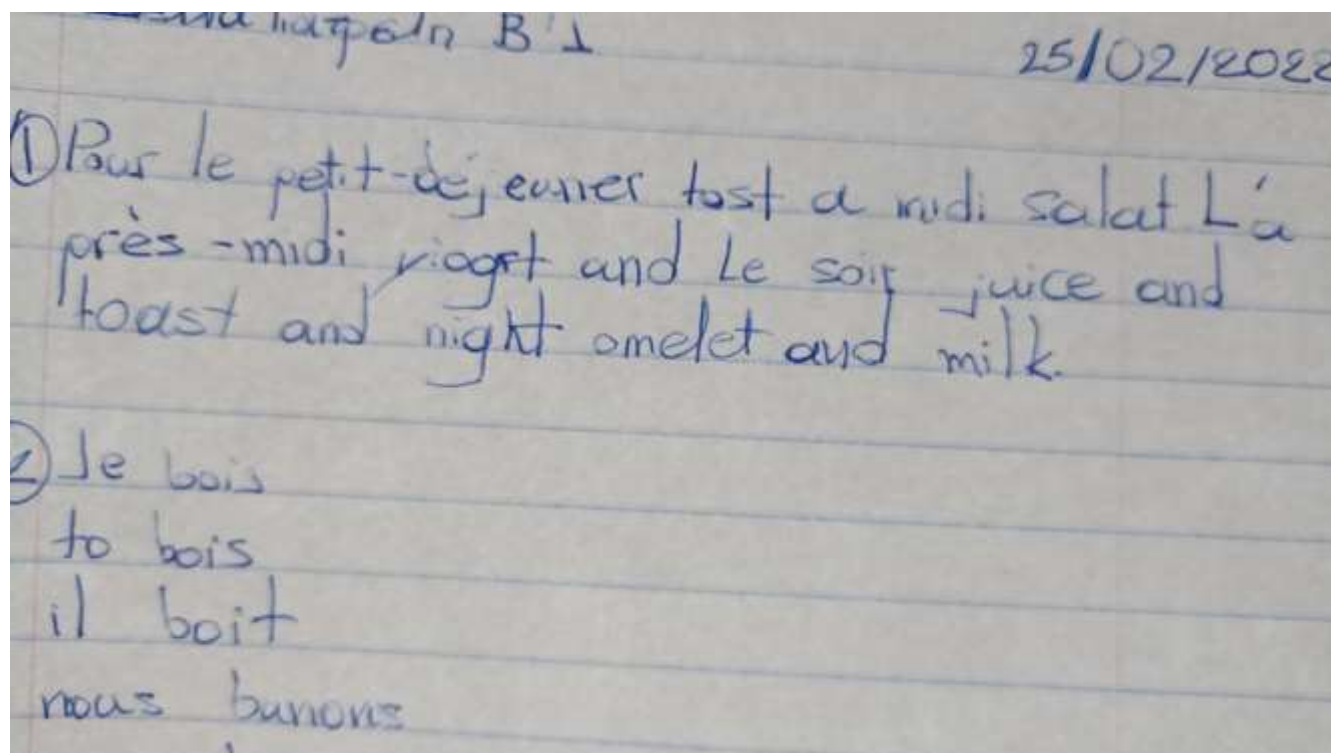 B'1
25/02/2022
① Pour le petit-déjeuner tost a midi salat L'a
près-midi and Le soir juice and
toast and night omelet and milk.
② Je bois
to bois
il boit
nous bunons